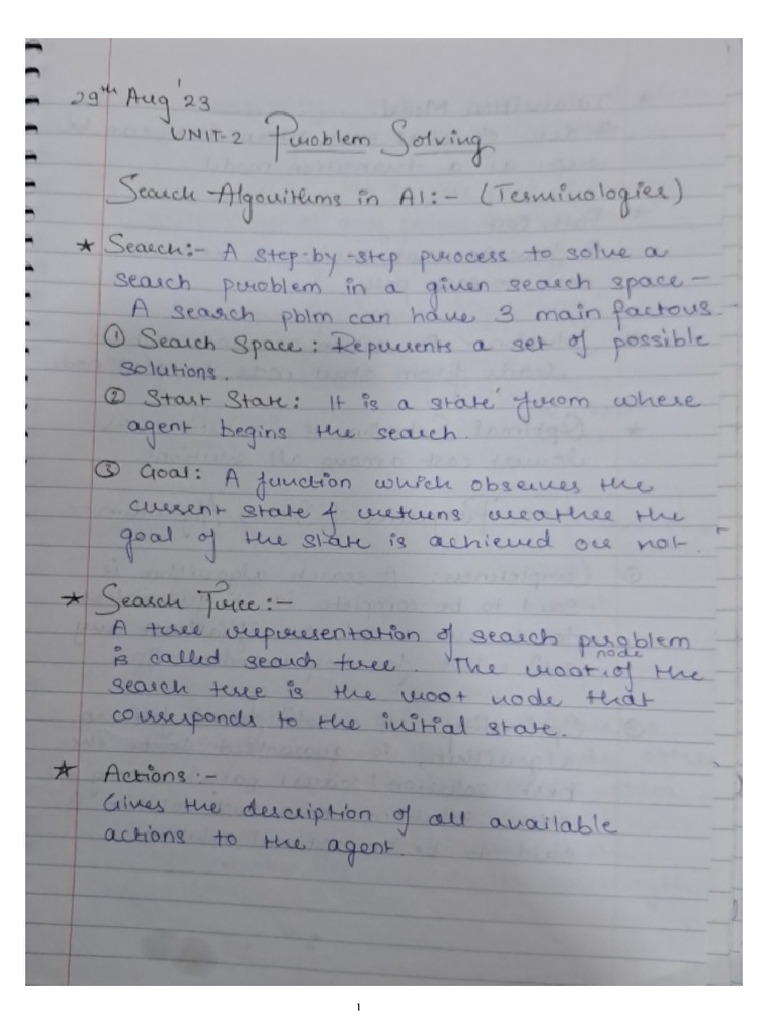 29th Aug '23
UNIT-2 Problem Solving
Search Algorithms in AI:- (Terminologies)
* Search:- A step-by-step process to solve a
search problem in a given search space -
A search pblm can have 3 main factors
① Search Space: Represents a set of possible
solutions.
② Start State: It is a state from where
agent begins the search.
③ Goal: A function which observes the
current state & returns weather the
goal of the state is achieved or not.
* Search Tree:-
A tree representation of search problem
is called search tree. The root node of the
search tree is the root node that
corresponds to the initial state.
* Actions:-
Gives the description of all available
actions to the agent.
1